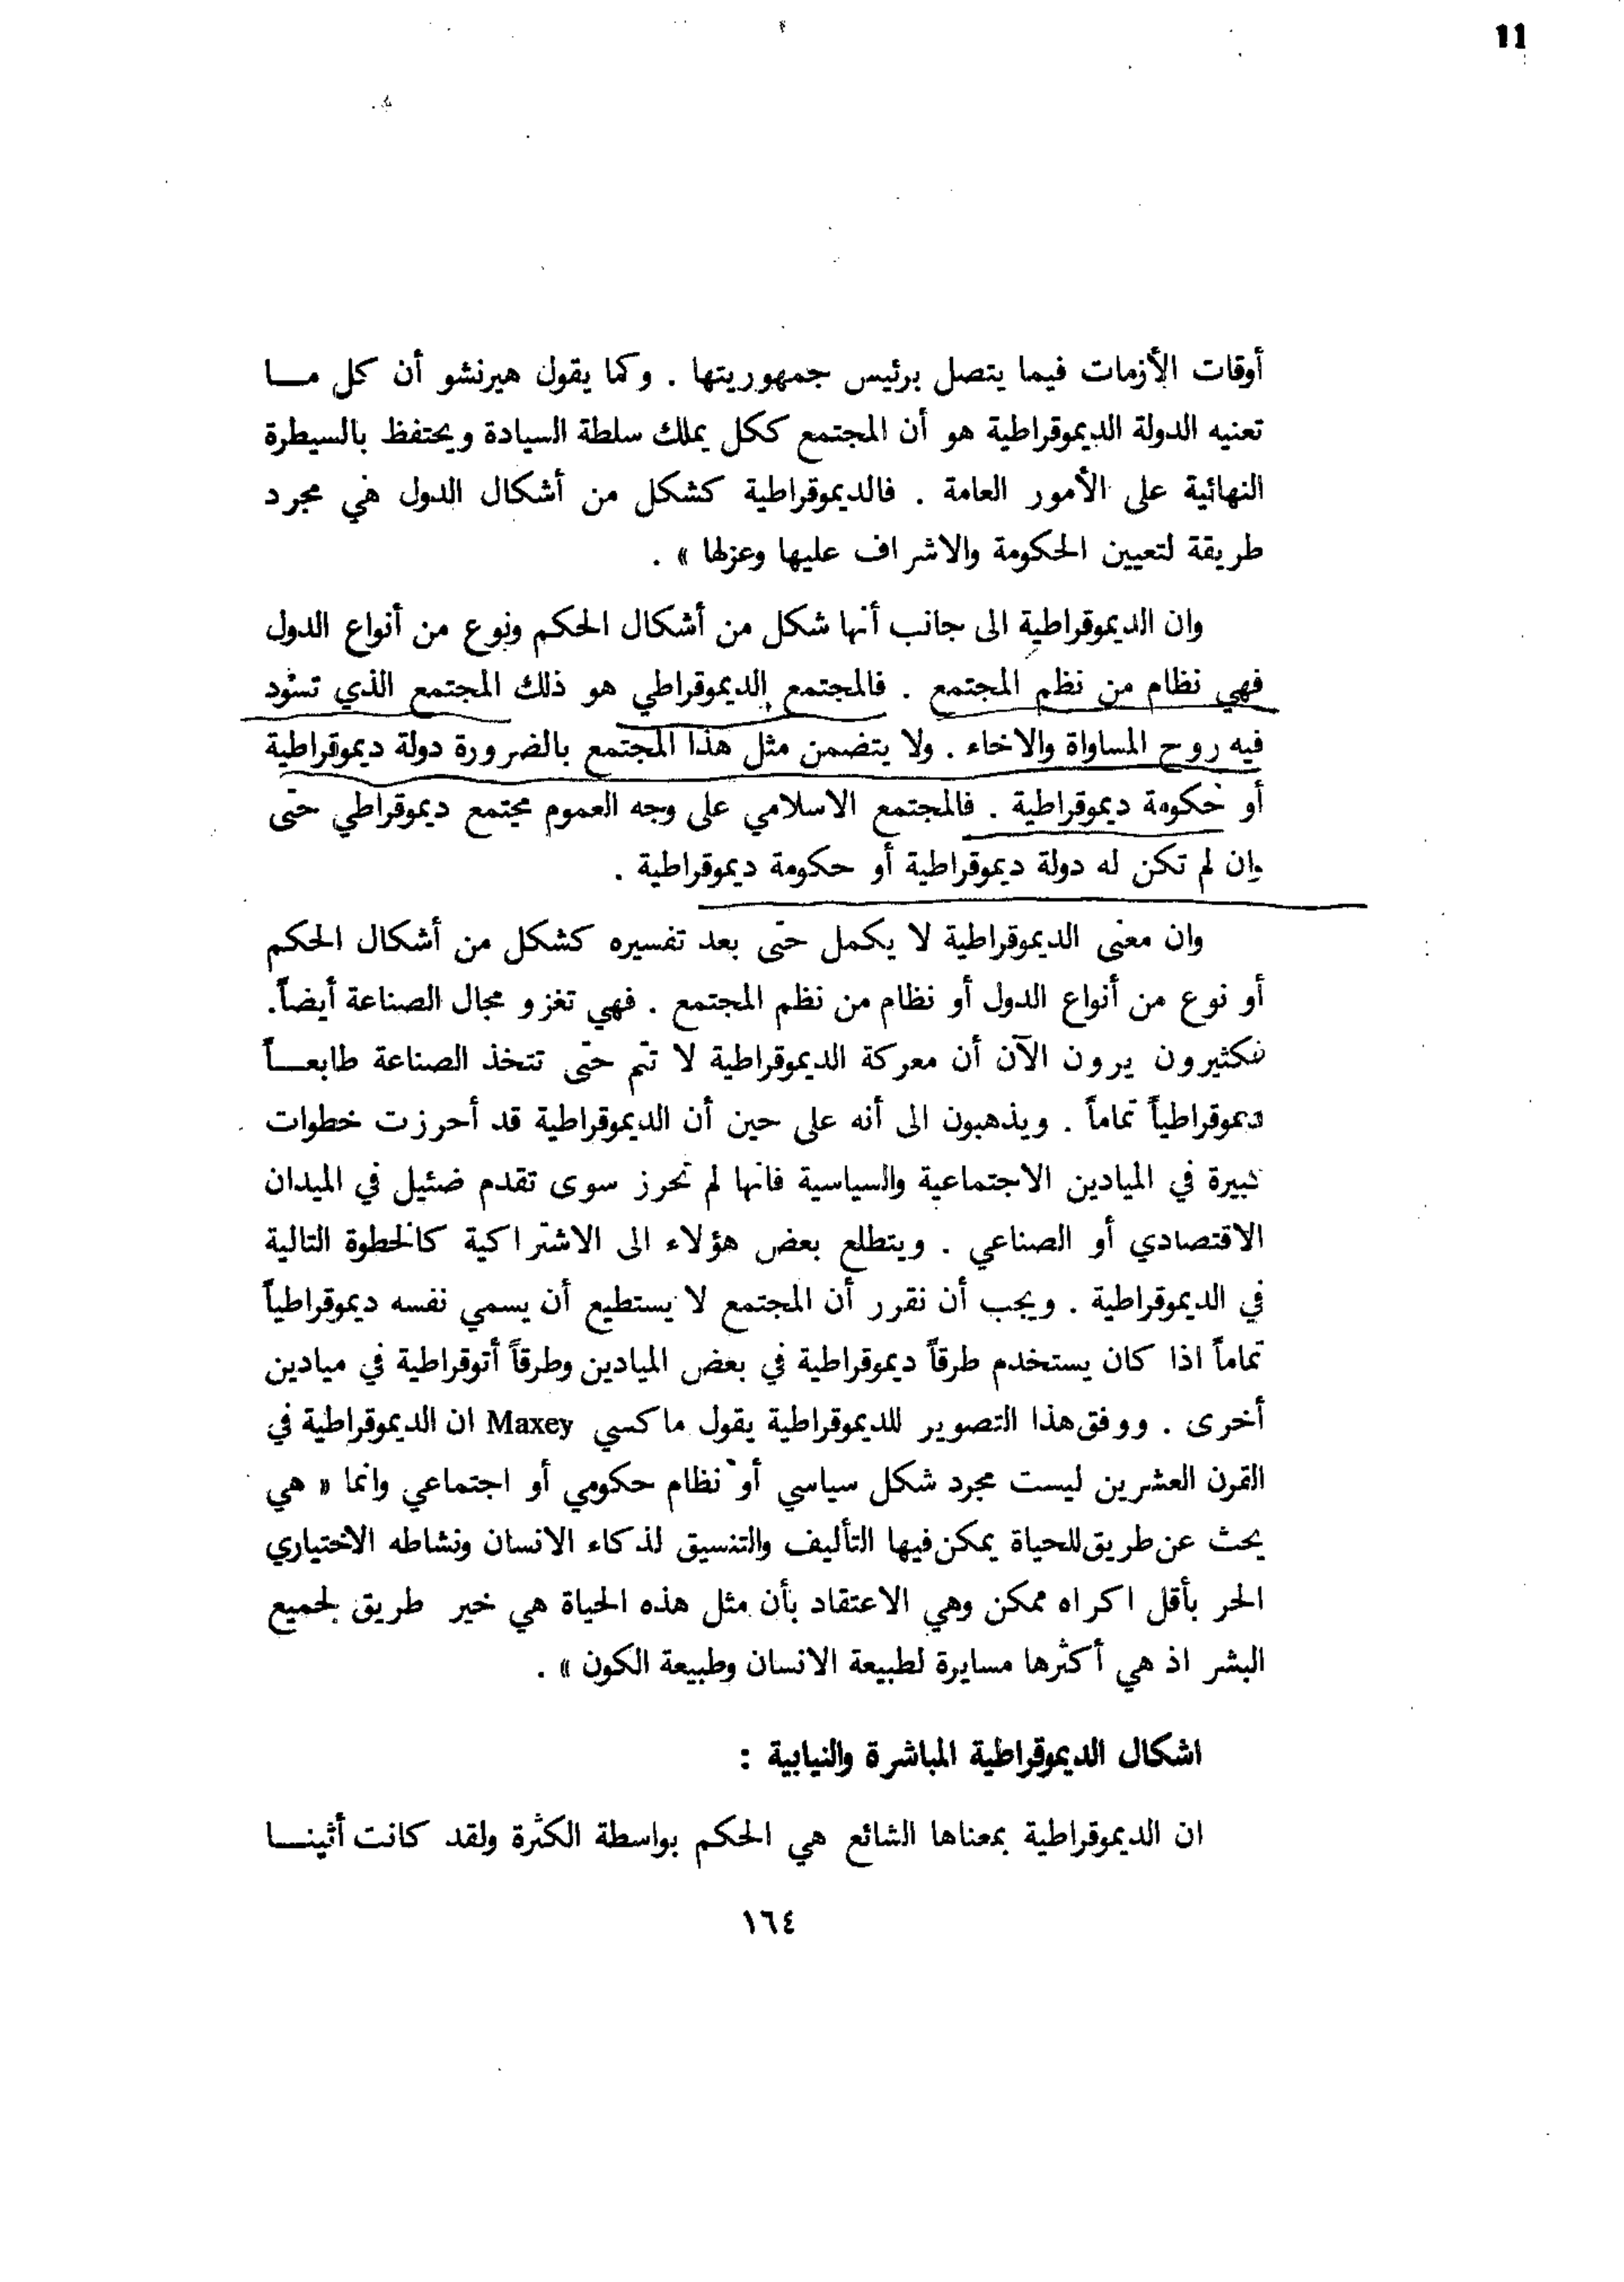 11
أوقات الأزمات فيما يتصل برئيس جمهوريتها . وكما يقول هيرنشو أن كل مـــا
تعنيه الدولة الديموقراطية هو أن المجتمع ككل يملك سلطة السيادة ويحتفظ بالسيطرة
النهائية على الأمور العامة . فالديموقراطية كشكل من أشكال الدول هي مجرد
طريقة لتعيين الحكومة والاشراف عليها وعزلها » .
وان الديموقراطية الى جانب أنها شكل من أشكال الحكم ونوع من أنواع الدول
فهي نظام من نظم المجتمع . فالمجتمع الديموقراطي هو ذلك المجتمع الذي تسود
فيه روح المساواة والاخاء . ولا يتضمن مثل هذا المجتمع بالضرورة دولة ديموقراطية
أو حكومة ديموقراطية . فالمجتمع الاسلامي على وجه العموم مجتمع ديموقراطي حتى
وإن لم تكن له دولة ديموقراطية أو حكومة ديموقراطية .
وان معنى الديموقراطية لا يكمل حتى بعد تفسيره كشكل من أشكال الحكم
أو نوع من أنواع الدول أو نظام من نظم المجتمع . فهي تغزو مجال الصناعة أيضاً.
فكثيرون يرون الآن أن معركة الديموقراطية لا تتم حتى تتخذ الصناعة طابعـــاً
ديموقراطياً تماماً . ويذهبون الى أنه على حين أن الديموقراطية قد أحرزت خطوات
كبيرة في الميادين الاجتماعية والسياسية فانها لم تحرز سوى تقدم ضئيل في الميدان
الاقتصادي أو الصناعي . ويتطلع بعض هؤلاء الى الاشتراكية كالخطوة التالية
في الديموقراطية . ويجب أن نقرر أن المجتمع لا يستطيع أن يسمي نفسه ديموقراطياً
تماماً اذا كان يستخدم طرقاً ديموقراطية في بعض الميادين وطرقاً أتوقراطية في ميادين
أخرى . ووفق هذا التصوير للديموقراطية يقول ماكسي Maxey ان الديموقراطية في
القرن العشرين ليست مجرد شكل سياسي أو نظام حكومي أو اجتماعي وانما « هي
بحث عن طريق للحياة يمكن فيها التأليف والتنسيق لذكاء الانسان ونشاطه الاختياري
الحر بأقل اكراه ممكن وهي الاعتقاد بأن مثل هذه الحياة هي خير طريق لجميع
البشر اذ هي أكثرها مسايرة لطبيعة الانسان وطبيعة الكون » .
اشكال الديموقراطية المباشرة والنيابية :
ان الديموقراطية بمعناها الشائع هي الحكم بواسطة الكثرة ولقد كانت أثينـــا
١٦٤